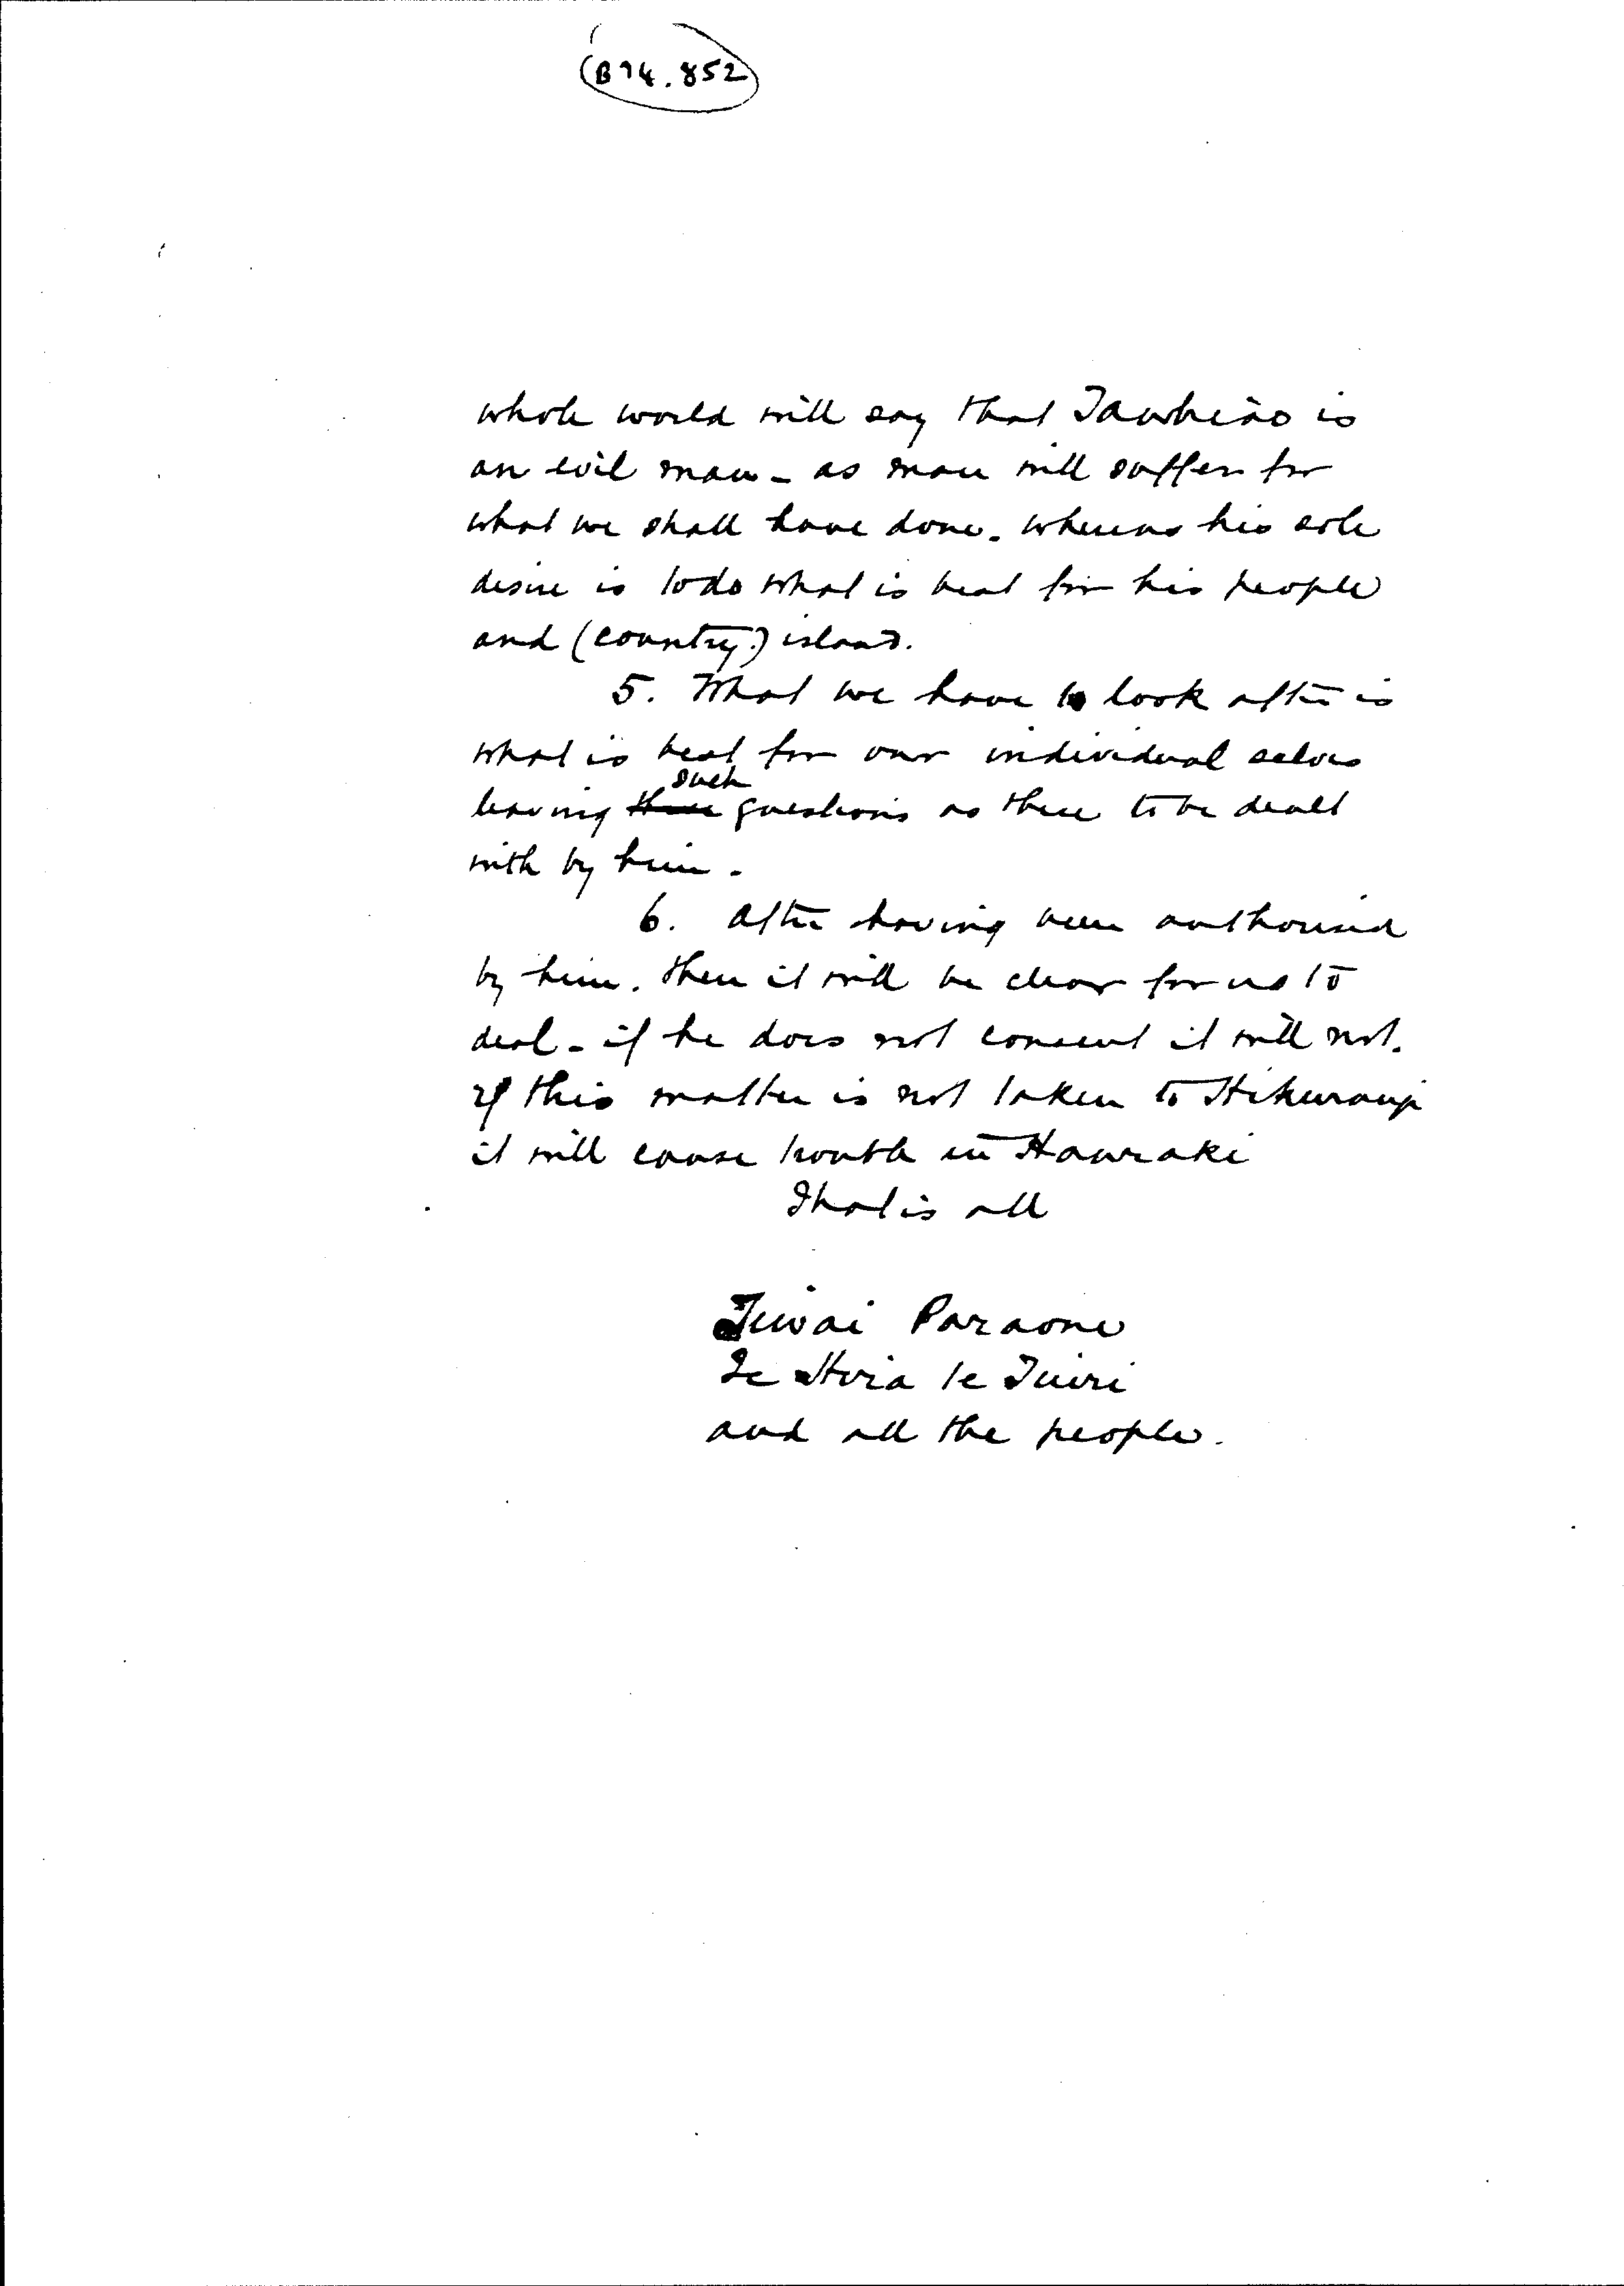 (B74.852)
whole world will say that Tawhiao is
an evil man – as man will suffer for
what we shall have done. Whereas his sole
desire is to do what is best for his people
and (country.) island.
5. What we have to look after is
what is best for our individual selves
leaving such questions as these to be dealt
with by him.
6. After having been authorised
by him. then it will be clear for us to
deal – if he does not consent it will not.
If this matter is not taken to Hikurangi
it will cause trouble in Hauraki
That is all
Paraone
Te Hira te Tuiri
and all the people.